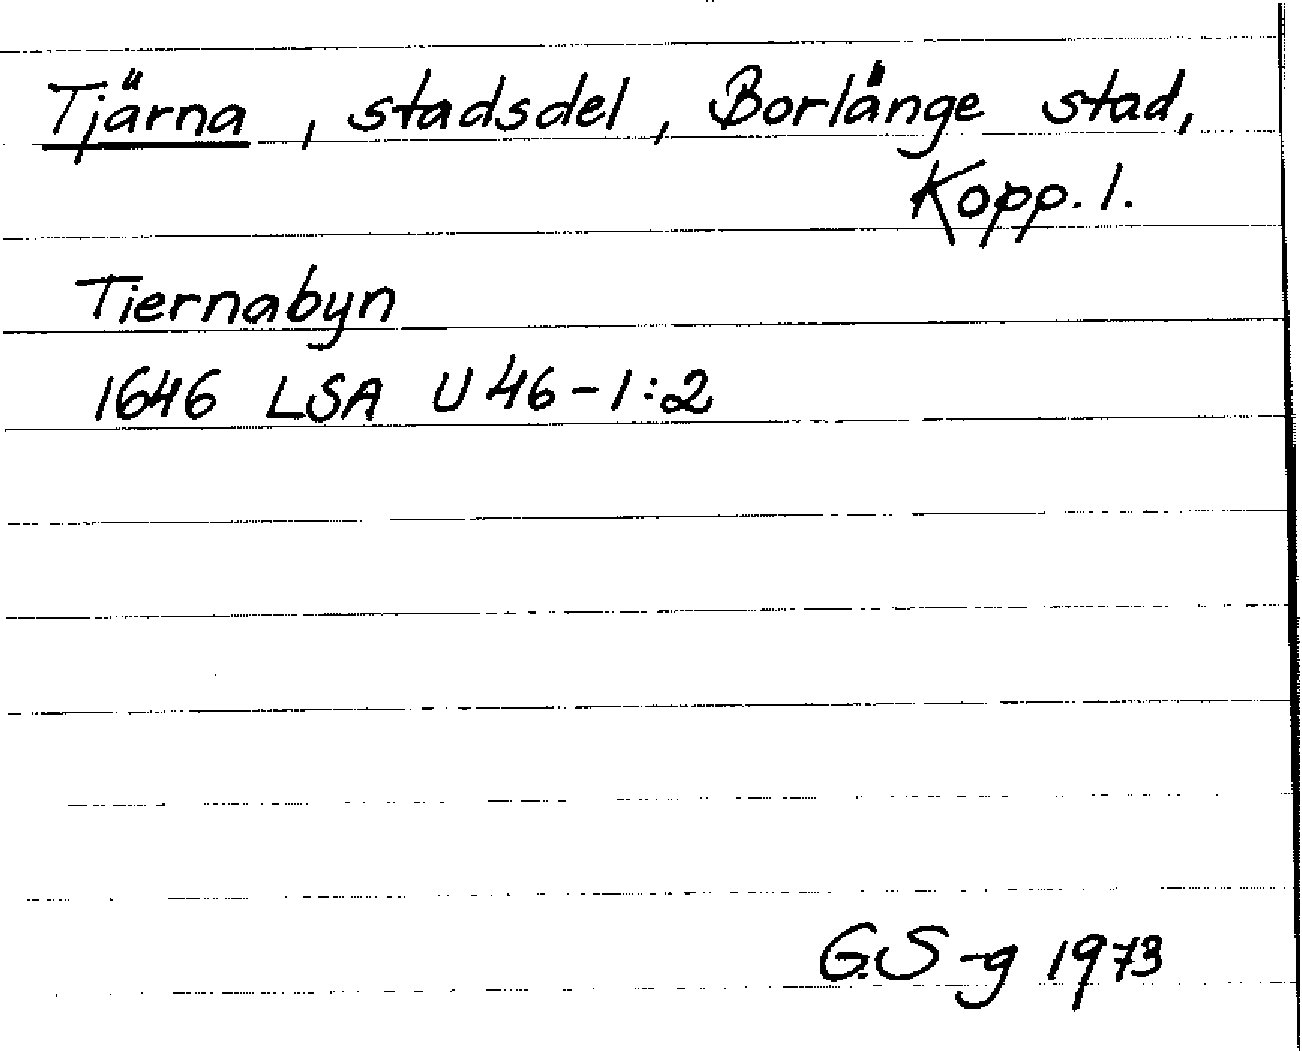 Tjärna, stadsdel, Borlänge stad,
Kopp. l.
Tiernabyn
1646 LSA U 46-1:2
G.S-g 1973